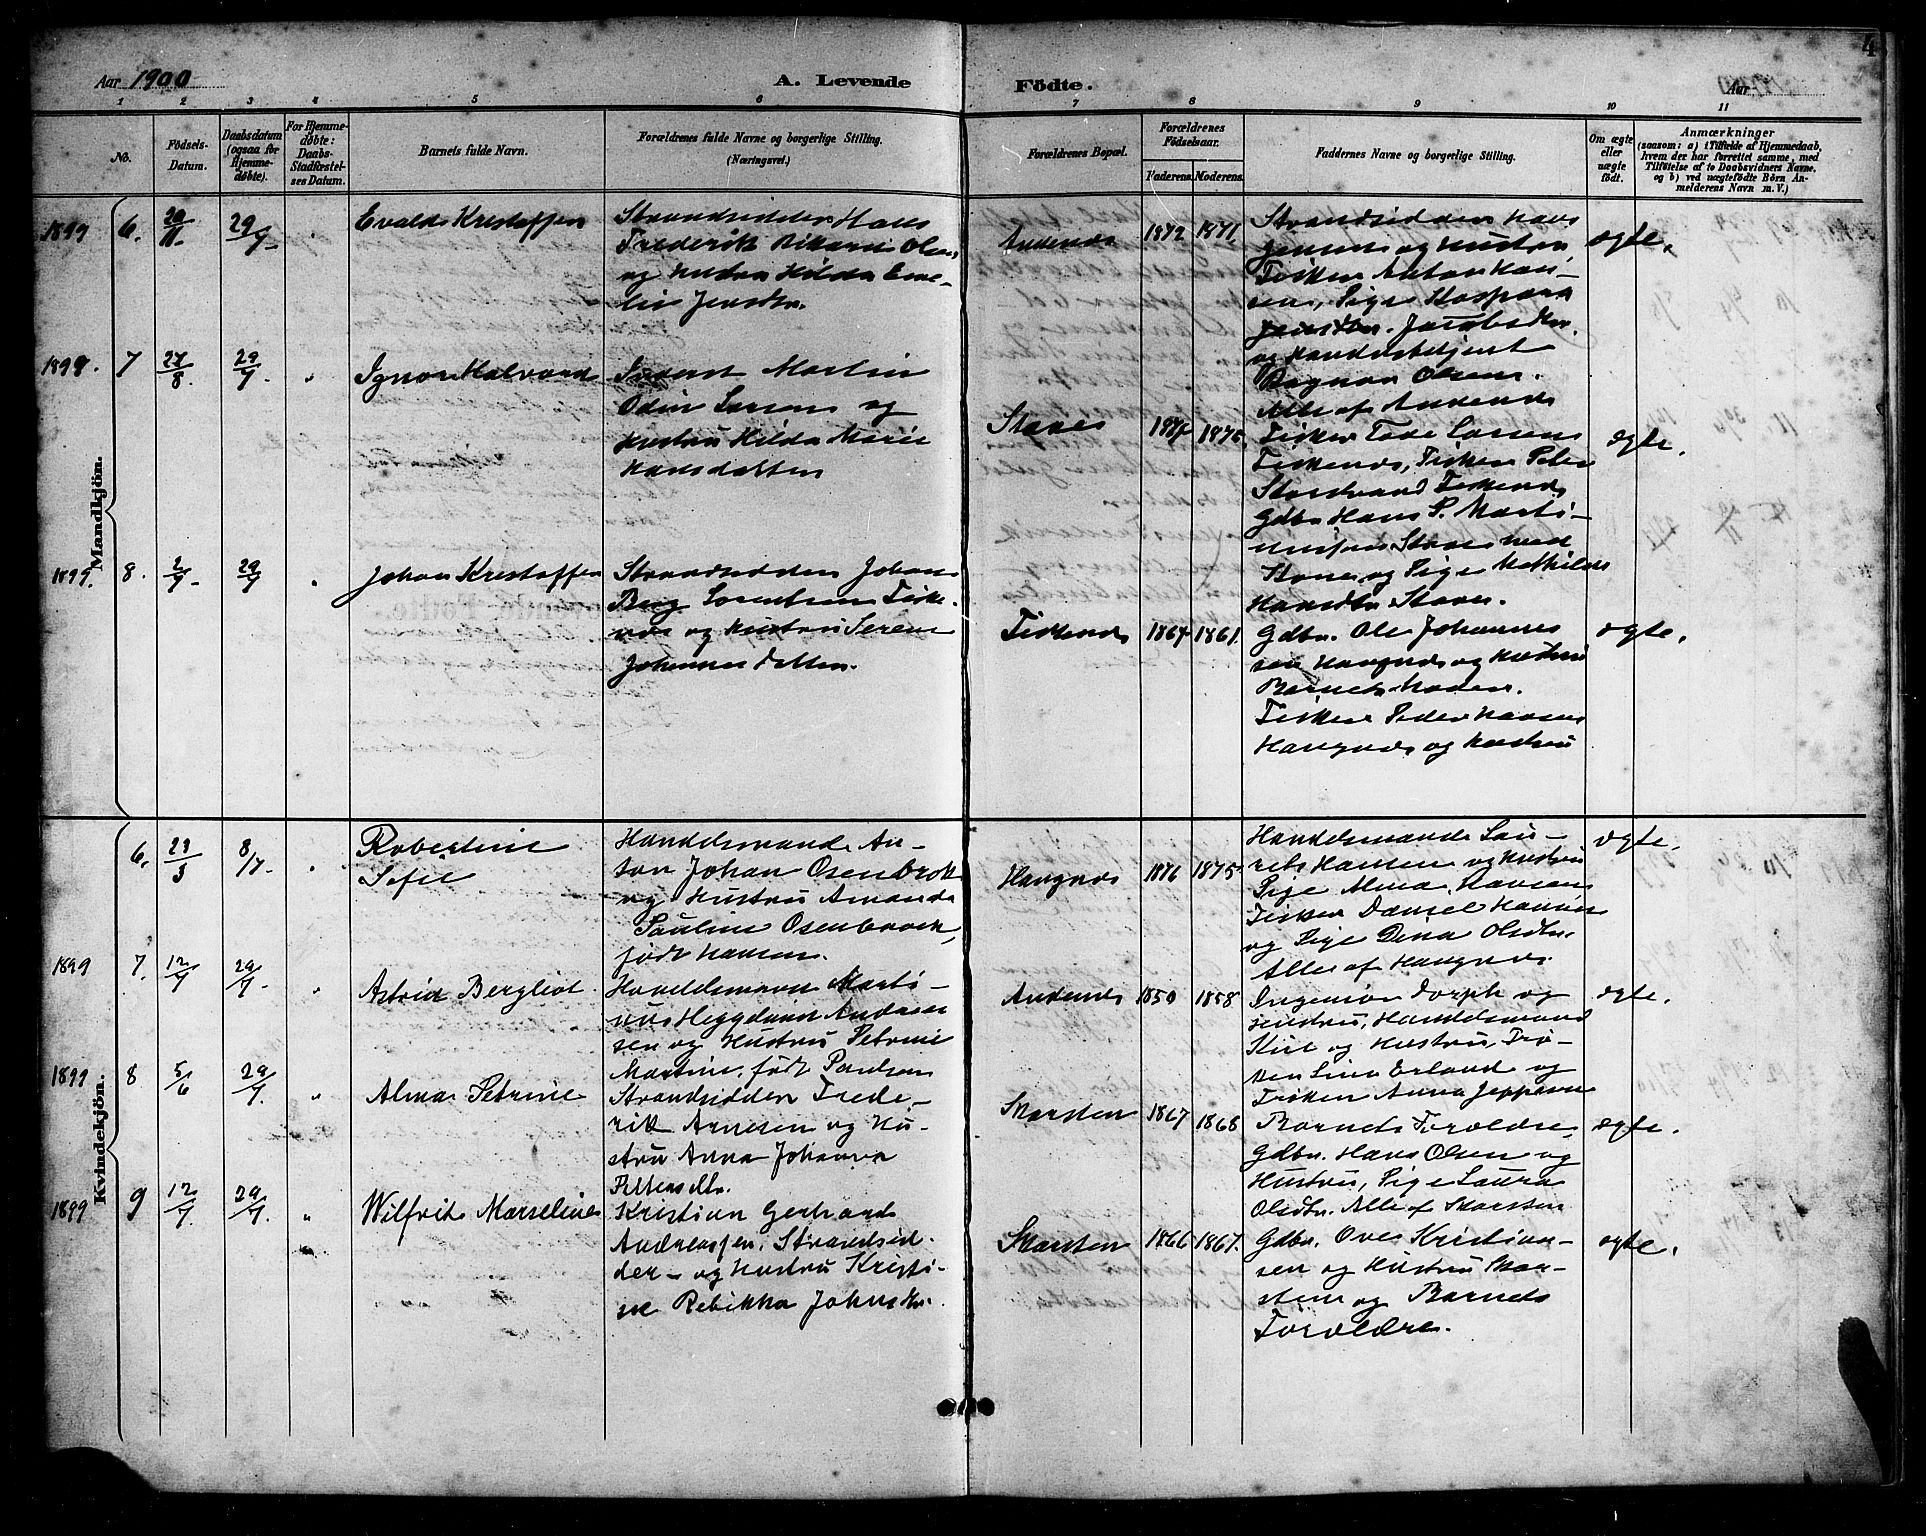 4
Aar 1900
A. Levende
Födte.
Aar
1 2 3 4 5 6
7 8 9 10 11
No.
Födsels-
Datum.
Daabsdatum
(ogsaa for
Hjemme-
döbte).
For Hjemme-
døbte:
Daabs-
Stadfæstel-
ses Datum.
Barnets fulde Navn.
Forældrenes fulde Navne og borgerlige Stilling.
(Næringsvei.)
Forældrenes Bopæl.
Forældrenes
Födselsaar.
Faderens.
Moderens.
Faddernes Navne og borgerlige Stilling.
Om ægte
eller
uægte
födt.
Anmærkninger
(saasom: a) i Tilfælde af Hjemmedaab,
hvem der har forrettet samme, med
Tilföielse af to Daabsvidners Navne,
og b) ved uægtefödte Börn An-
melderens Navn m. V.)
Mandkjön.
1899 6. 20/11. 29/7.
Evald Kristoffen
Strandsidder Hans
Frederik Rikard Olsen
og Hustru Hilda Eme-
lie Jensdtr.
Andenes 1872 1871.
Strandsidder Hans
Jensen og Hustru
Fisker Anton Han-
sen, Pige Kaspara
Jacobsdtr.
og Handelsbetjent
Ragnar Olsen.
Alle af Andenes
ægte.
1899. 7 27/8. 29/7.
Ignar Halvard
Martin
Odin Larsen og
Hustru Hilda Marie
Hansdatter
Staves 1876
Fisker Tode Larsen
Fiskenes, Fisker Peder
Storstrand Fiskenes
Gdbr Hans P. Marti-
nussen Staves med
Kone og Pige Mathilde
Hansdtr Staves.
ægte.
1899. 8. 2/7. 29/7
Johan Kristoffer
Strandsidder Johan
Berg Lorentsen Fiske-
nes og Hustru Serene
Johannesdatter.
Fiskenes 1864 1861.
Gdbr. Ole Johannes
sen Haugnes og Hustru
Barnets Moder.
Fisker Peder Hansen
Haugnes og Hustru
ægte.
Kvindekjön.
6. 23/3 8/7.
Robertine
Sofie
Handelsmand An-
ton Johan Osenbrok
og Hustru Amanda
Pauline Osenbrock,
født Hansen.
Haugnes 1876 1875.
Handelsmand Lau-
rits Hansen og Hustru
Pige Alma Hansen
Fisker Daniel Hansen
og Pige Dina Olsdtr.
Alle af Haugnes.
ægte.
1899 7. 12/7 29/7.
Astrid Bergliot.
Handelsmann Marti-
nus Heggelund Andreas
sen og Hustru Petrine
Martine, født Paulsen
Andenes 1850 1858
Ingeniør Dorph og
Hustru, Handelsmand
Kiil og Hustru, Frø-
ken Lina Erland og
Frøken Anna Jeppesen
ægte.
1899 8 5/6 29/7.
Alma Petrine
Strandsidder Frede-
rik Arnesen og Hu-
stru Anna Johanna
Pettersdtr.
Skarsten 1867 1868
Barnets Foræeldre,
Gdbr. Hans Olsen og
Hustru, Pige Laura
Olsdtr. Alle af Skarsten
ægte.
1899 9 12/7. 29/7.
Wilfrid Marseline
Kristian Gerhard
Andreassen, Strandsid-
der - og Hustru Kristi-
ne Rebikka Johnsdtr.
Skarsten 1866 1867.
Gdbr. Ove Kristian-
sen og Hustru Skar-
sten og Barnets
Forældre.
ægte.